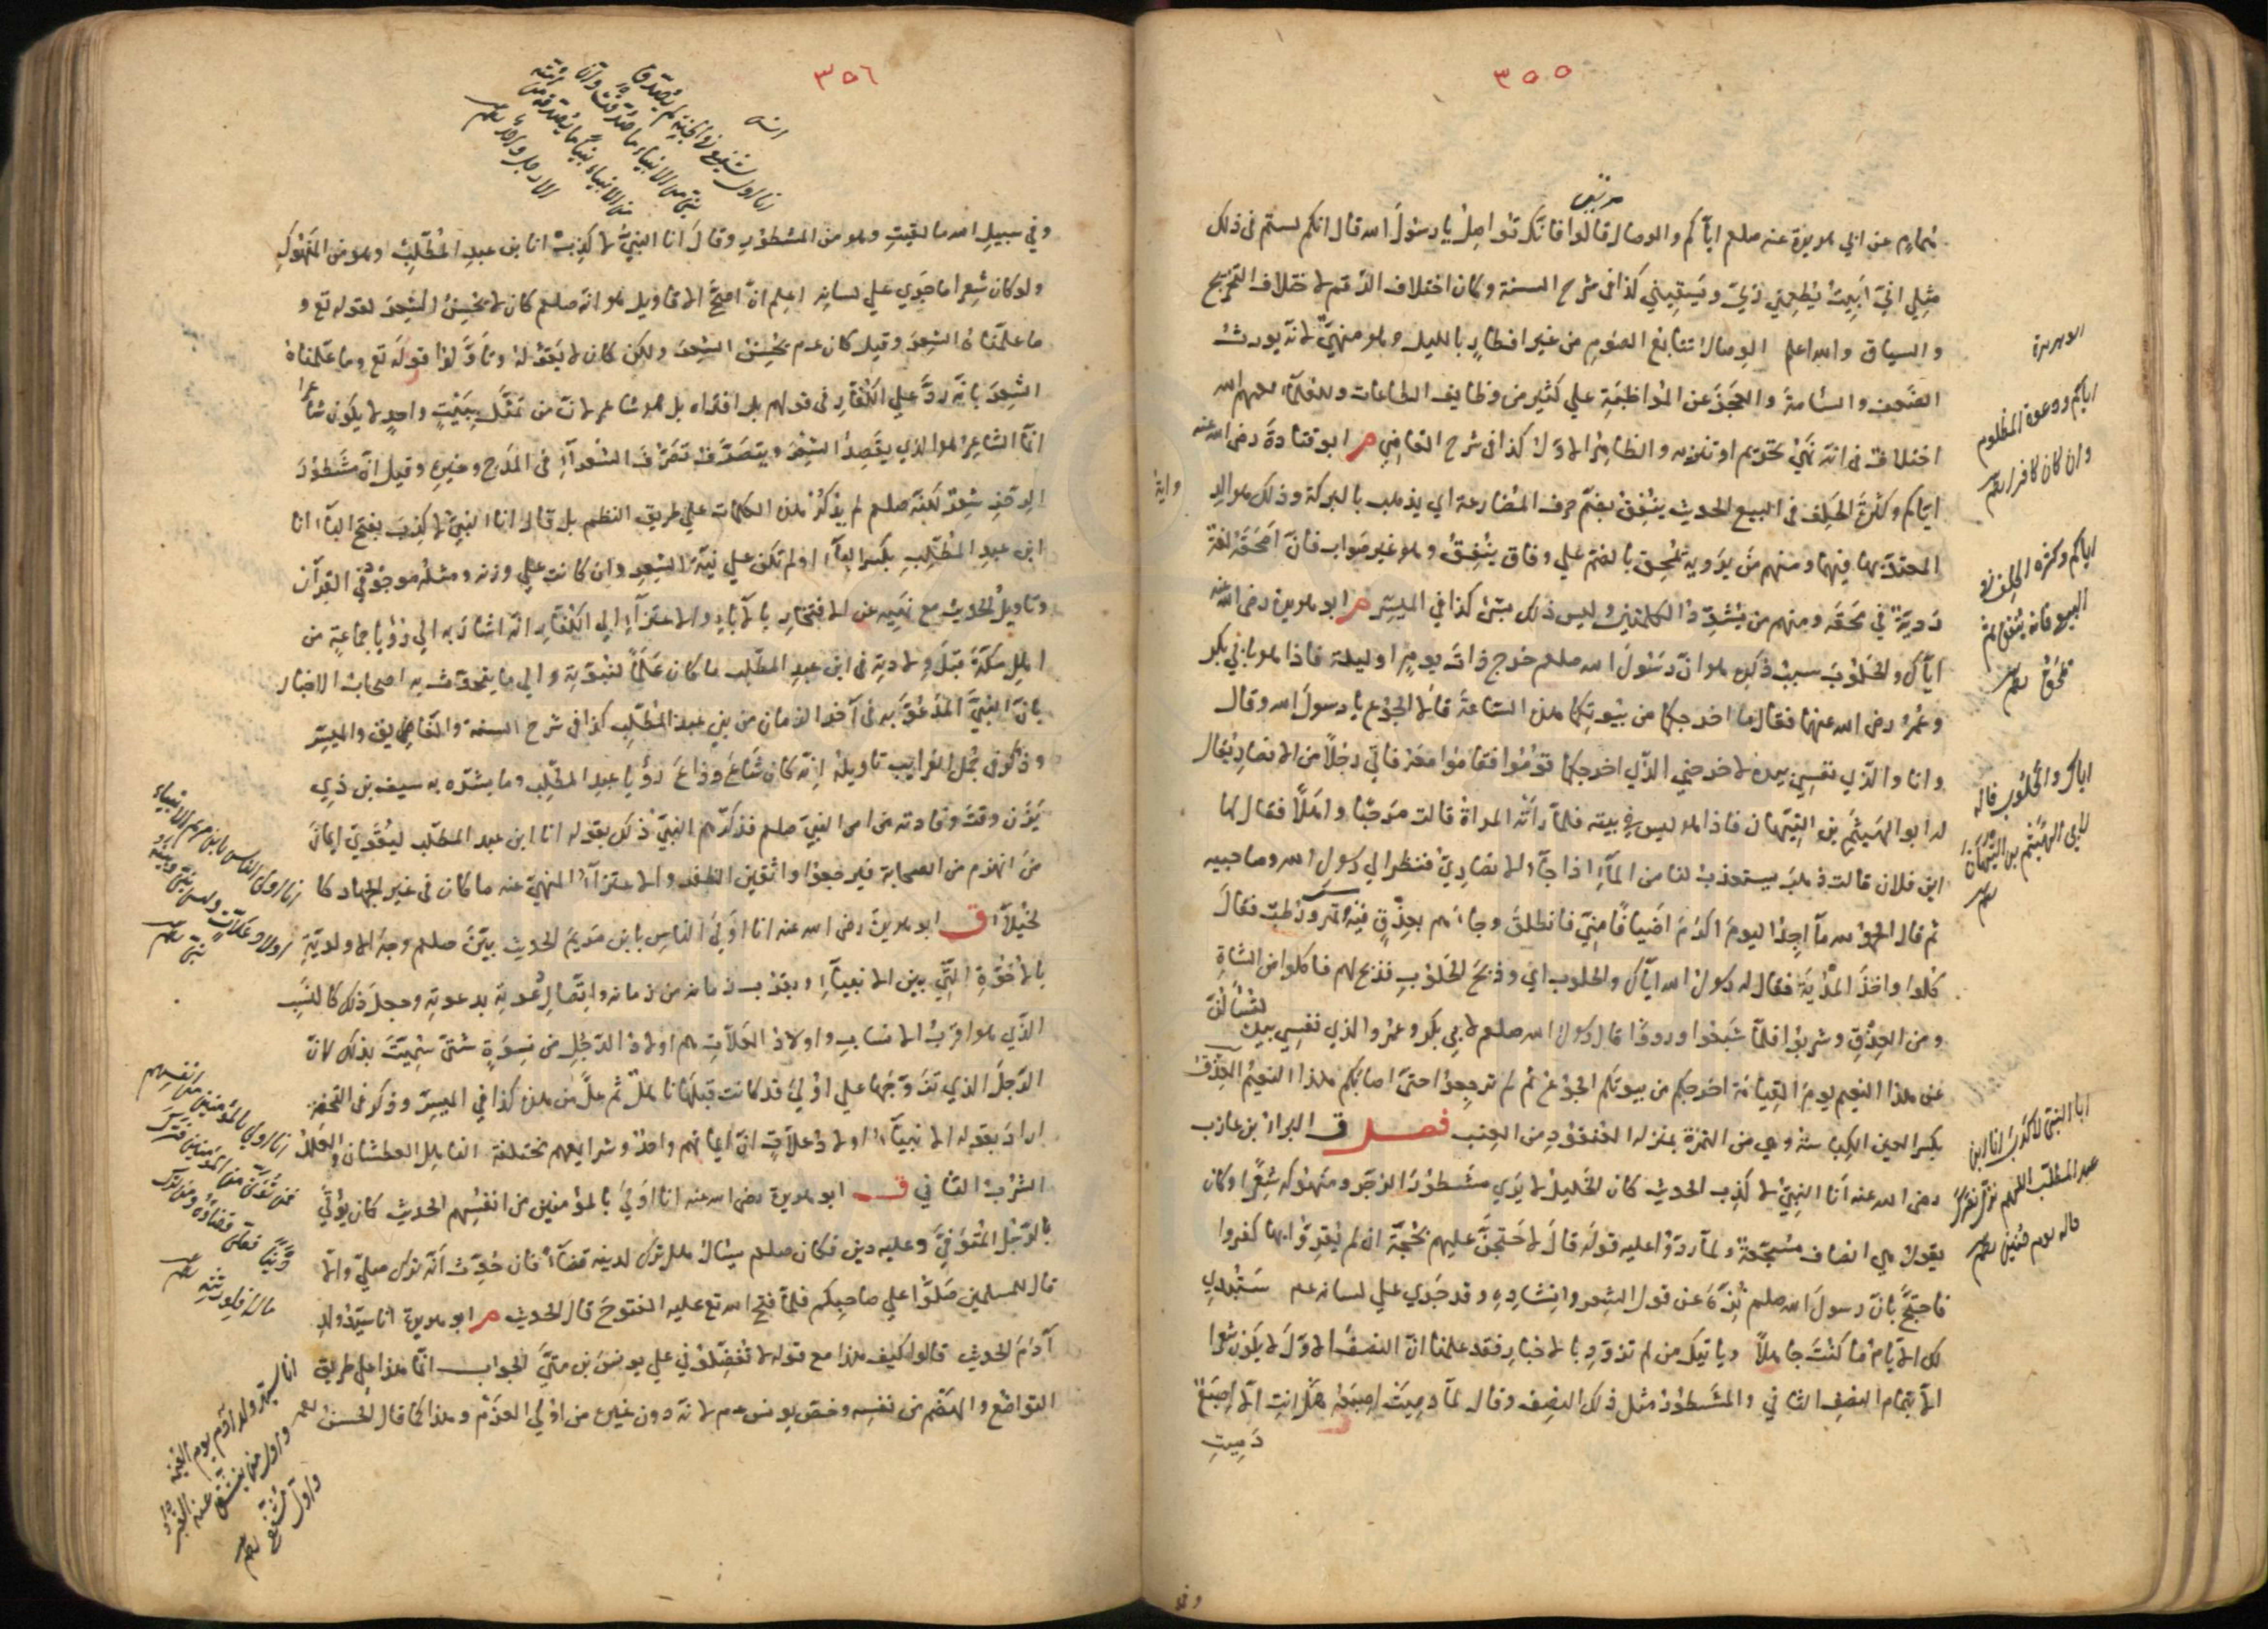 ٣٥٥
مرتين
همام عن ابي هريرة عنه صلعم اياكم والوصال قالوا فانك تواصل يا رسول الله قال انكم لستم في ذلك
مثلي اني ابيت يطعمني ربي ويسقيني كذا في شرح السنة وكان اختلاف الرقم لاختلاف التخريج
والسياق والله اعلم الوصال تتابع الصوم من غير افطار بالليل وهو منهي لانه يورث
الضعف والسامة والعجز عن المواظبة علي كثير من وظايف الطاعات وللعلماء رحمهم الله
اختلاف في انه نهي تحريم او تنزيه والظاهر الاول كذا في شرح القاضي م ابو قتادة رضي الله عنه
اياكم وكثرة الحلف في البيع الحديث ينفق بضم حرف المضارعة اي يذهب بالبركة وذلك هو الرواية
المعتد بها فيهما ومنهم من يرويه يمحق بالضم علي وفاق ينفق وهو غير صواب فان امحق لغة
ردية في محقه ومنهم من يشدد الكلمتين وليس ذلك بشئ كذا في الميسر م ابو هريرة رضي الله عنه
اياك والحلوب سبب ذكره هو ان رسول الله صلعم خرج ذات يوم او ليلة فاذا هو بابي بكر
وعمر رضي الله عنهما فقال ما اخرجكما من بيوتكما هذه الساعة قالا الجوع يا رسول الله وقال
وانا والذي نفسي بيده لاخرجني الذي اخرجكما قوموا فقاموا معه فاتي رجلا من الانصار يقال
له ابو الهيثم بن التيهان فاذا هو ليس في بيته فلما راته المراة قالت مرحبا واهلا فقال لها
اين فلان قالت ذهب يستعذب لنا من الماء اذا جاء الانصاري فنظر الي رسول الله وصاحبيه
ثم قال الحمد لله ما اجد اليوم اكرم اضيافا مني فانطلق وجاءهم بعذق فيه بسر وتمر ورطب فقال
كلوا واخذ المدية فقال له رسول الله اياك والحلوب اي وذبح الحلوب فذبح لهم فاكلوا من الشاة
ومن العذق وشربوا فلما شبعوا ورووا قال رسول الله صلعم لابي بكر وعمر والذي نفسي بيده لتسألن
عن هذا النعيم يوم القيامة اخرجكم من بيوتكم الجوع ثم لم ترجعوا حتى اصابكم هذا النعيم العذق
بكسر العين الكباسة وهي من التمرة بمنزلة العنقود من العنب فصل ق البراء بن عازب
رضي الله عنه انا النبي لا كذب الحديث كان الخليل لا يري مشطور الرجز ومنهوكه شعرا وكان
يقول هي انصاف مسجعة ولما ردوا عليه قوله قال لاحتجن عليهم بحجة ان لم يقروا بها كفروا
فاحتج بان رسول الله صلعم نزه عن قول الشعر وانشاده وقد جري علي لسانه عم ستبدي
لك الايام ما كنت جاهلا وياتيك من لم تزود بالاخبار فقد علمنا ان النصف الاول لا يكون شعرا
الا بتمام النصف الثاني والمشطور مثل ذلك النصف وقال لما دميت اصبعه هل انت الا اصبع
دميت
ابو هريرة
اياكم ودعوة المظلوم
وان كان كافرا
اياكم وكثرة الحلف في
البيع فانه ينفق ثم
يمحق
اياك والحلوب قاله
لابي الهيثم بن التيهان
انا النبي لا كذب انا ابن
عبد المطلب اللهم نزل نصرك
قاله يوم حنين
٣٥٦
انس
انا اول شفيع في الجنة لم يصدق
نبي من الانبياء ما صدقت وان
من الانبياء نبيا ما يصدقه من امته
الا رجل واحد
وفي سبيل الله ما لقيت وهو من المشطور وقال انا النبي لا كذب انا ابن عبد المطلب وهو من المنهوك
ولو كان شعرا ما جري علي لسانه اعلم ان اصح الاقاويل هو انه صلعم كان لا يحسن الشعر لقوله تع و
ما علمناه الشعر وقيل كان عم يحسن الشعر ولكن كان لا يقوله وتاولوا قوله تع وما علمناه
الشعر بانه رد علي الكفار في قولهم بل افتراه بل هو شاعر لان من تمثل ببيت واحد لا يكون شاعرا
انما الشاعر هو الذي يقصد الشعر ويتصرف تصرف الشعراء في المدح وغيره وقيل ان مشطور
الرجز شعر لكنه صلعم لم يذكر هذه الكلمات علي طريق النظم بل قال انا النبي لا كذب بفتح الباء انا
ابن عبد المطلب بكسر الباء او لم تكن علي نية الشعر وان كانت علي وزنه ومثله موجود في القران
وتاويل الحديث مع نهيه عن الافتخار بالاباء والاعتزاء الي الكفار انه اشار به الي رؤيا جماعة من
اهل مكة قبل ولادته في ابن عبد المطلب ما كان علما لنبوته والي ما يتحدث به اصحاب الاخبار
بان النبي المدعو به في آخر الزمان من بني عبد المطلب كذا في شرح السنة والفايق والميسر
وذكر في مجمل الغرايب تاويله انه كان شاع وذاع رؤيا عبد المطلب وما بشره به سيف بن ذي
يزن وقت وفادته من امر النبي صلعم فذكرهم النبي ذلك بقوله انا ابن عبد المطلب ليقوي ايمان
من انهزم من الصحابة فيرجعوا واثقين الظفر والاعتزاء المنهي عنه ما كان في غير الجهاد كما
لخيلاء ق ابو هريرة رضي الله عنه انا اولي الناس بابن مريم الحديث بين صلعم وجه الاولوية
بالاخوة التي بين الانبياء وبقرب زمانه من زمانه واتصال دعوته بدعوته وجعل ذلك كالنسب
الذي هو اقرب الانساب واولاد العلات هم اولاد الرجل من نسوة شتى سميت بذلك لان
الرجل الذي تزوجها علي اولي قد كانت قبلها ناهل ثم عل من هذه كذا في الميسر وذكر في التحفة
اراد بقوله الانبياء اولاد علات ان ايمانهم واحد وشرايعهم مختلفة الناهل العطشان والعلل
الشرب الثاني ق ابو هريرة رضي الله عنه انا اولي بالمؤمنين من انفسهم الحديث كان يؤتي
بالرجل المتوفي وعليه دين فكان صلعم يسال هل ترك لدينه قضاء فان حدث انه ترك صلي والا
قال للمسلمين صلوا علي صاحبكم فلما فتح الله تع عليه الفتوح قال الحديث م ابو هريرة انا سيد ولد
آدم الحديث قالوا كيف هذا مع قوله لا تفضلوني علي يونس بن متي الجواب انما هذا علي طريق
التواضع والهضم من نفسه وخص يونس عم لانه دون غيره من اولي العزم وهذا كما قال الحسن
انا اولى الناس بابن مريم الانبياء
اولاد علات وليس بيني وبينه
نبي
انا اولى بالمؤمنين من انفسهم
فمن توفي من المؤمنين فترك
دينا فعلي قضاؤه ومن ترك
مالا فلورثته
انا سيد ولد آدم يوم القيمة
واول من ينشق عنه القبر
واول مشفع